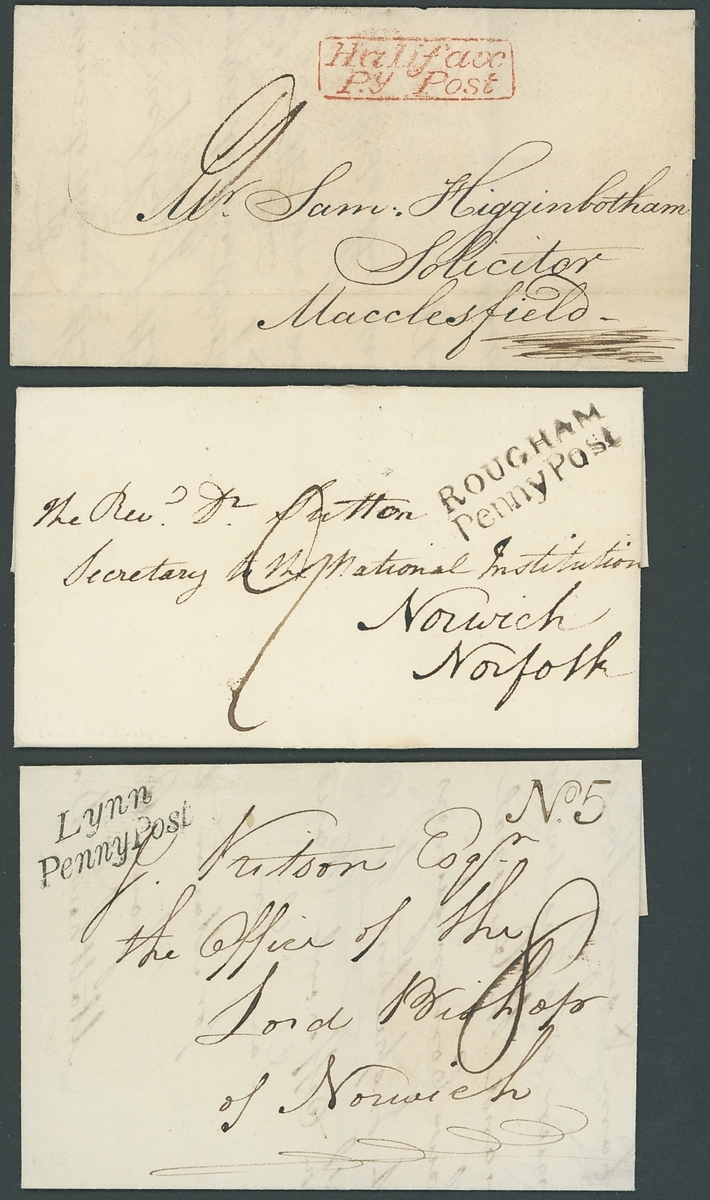 Halifax
P.y Post
Mr. Sam: Higginbotham
Solicitor
Macclesfield -
ROUGHAM
Penny Post
The Revd. Dr. Sutton
Secretary to the National Institution
Norwich
Norfolk
Lynn
Penny Post
No. 5
J. Kitson Esqr
the Office of the
Lord Bishop
of Norwich